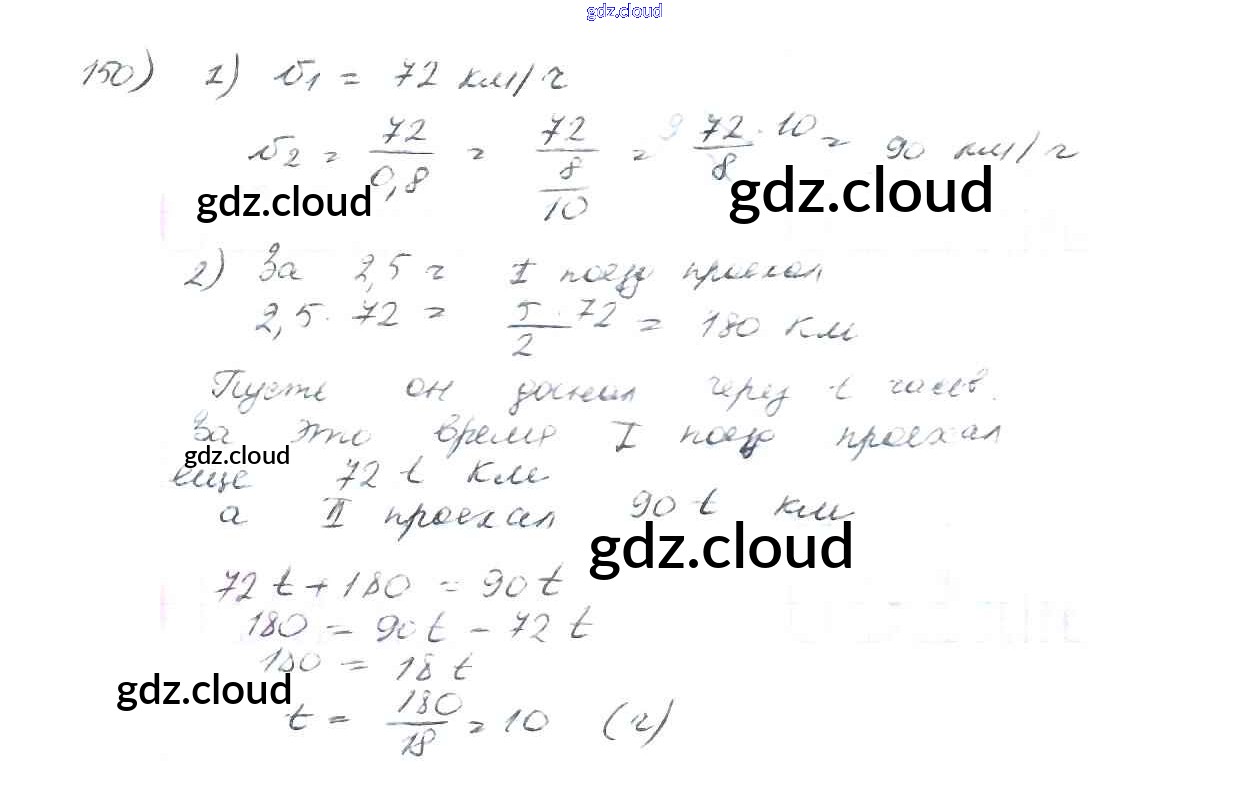 gdz.cloud
150) 1) v₁ = 72 км/ч
v₂ = 72/0,8 = 72/(8/10) = 9 72·10/8 = 90 км/ч
gdz.cloud gdz.cloud
2) За 2,5 ч I поезд проехал
2,5 · 72 = 5·72/2 = 180 км
Пусть он догнал через t часов.
За это время I поезд проехал
gdz.cloud
еще 72 t км
а II проехал 90 t км
gdz.cloud
72 t + 180 = 90 t
180 = 90 t - 72 t
180 = 18 t
gdz.cloud
t = 180/18 = 10 (ч)